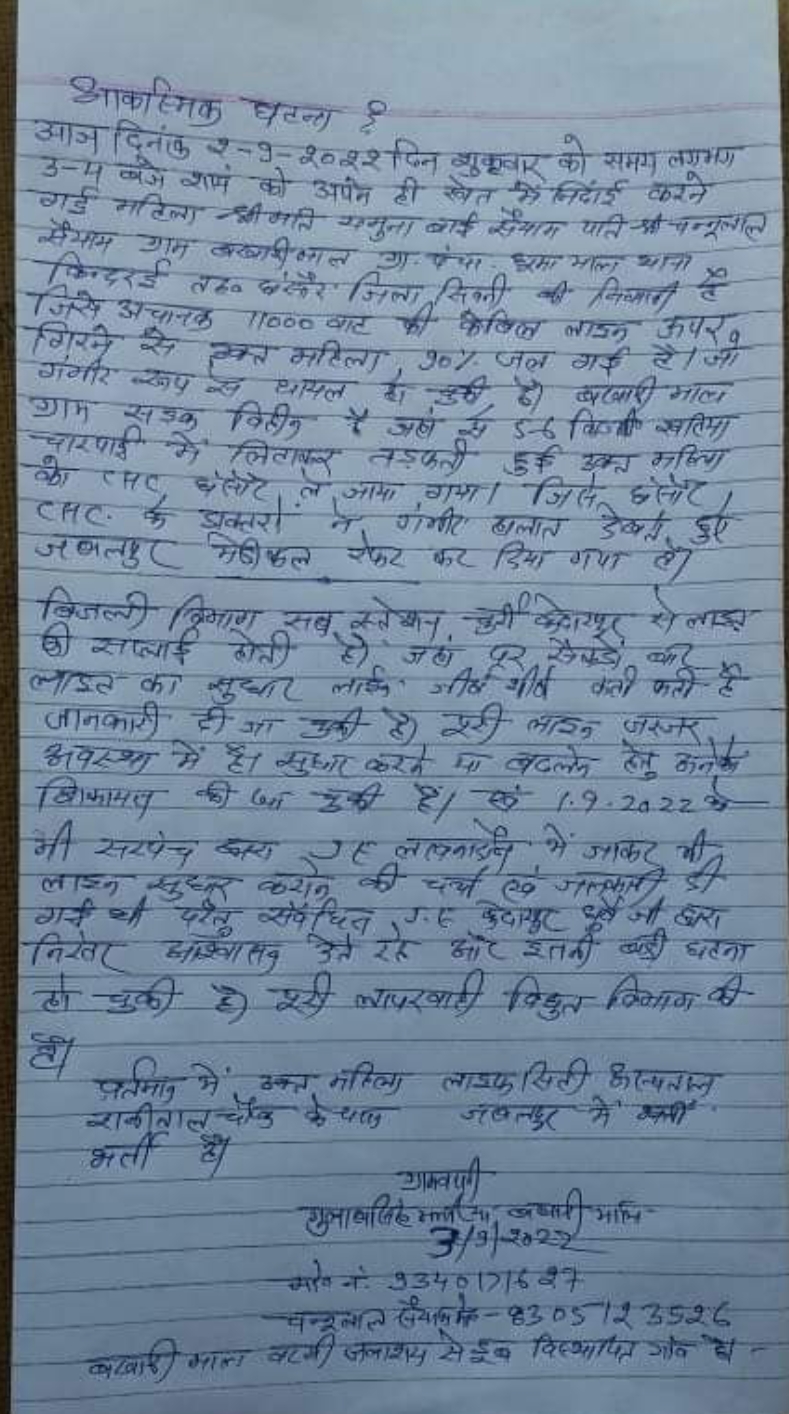 आकस्मिक घटना है
आज दिनांक २-9-२०२२ दिन शुक्रवार को समय लगभग
3-4 बजे शाम को अपने ही खेत में निंदाई करने
गई महिला श्रीमति जमुना बाई सैयाम पति श्री चन्दूलाल
सैयाम ग्राम बखारी माल ग्रा. पंचा धूमा माल थाना
किन्दरई तह० घंसौर जिला सिवनी की निवासी है
जिसे अचानक 11000 वाट की केबिल लाइन ऊपर
गिरने से उक्त महिला 90% जल गई है। जो
गंभीर रूप से घायल हो चुकी है। बखारी माल
ग्राम सड़क विहीन है जहां से 5-6 किमी खटिया
चारपाई में लिटाकर तड़फती हुई उक्त महिला
को CHC घंसौर ले जाया गया। जिसे घंसौर
CHC. के डाक्तरों ने गंभीर हालात देखते हुए
जबलपुर मेडीकल रेफर कर दिया गया है।
बिजली विभाग सब स्टेशन केदारपुर से लाइन
की सप्लाई होती है। जहां पर सैकड़ो बार
लाइन का सुधार लाईन है
जानकारी दी जा चुकी है। पूरी लाइन जरजर
अवस्था में है। सुधार करने या बदलने हेतु अनेकों
शिकायत की जा चुकी है। एवं 1.9.2022 को
भी सरपंच द्वारा J E लखनादौन में जाकर भी
लाइन सुधार कराने की चर्चा एवं जानकारी दी
गई थी परंतु संबंधित J.E केदारपुर धुर्वे जी द्वारा
निरंतर आश्वासन देते रहे और इतनी बड़ी घटना
हो चुकी है। पूरी लापरवाही विद्युत विभाग की
है।
वर्तमान में उक्त महिला लाइफ सिटी अस्पताल
रानीताल चौक के पास जबलपुर में
भर्ती है।
ग्रामवासी
गुलाबसिंह बखारी माल
3/9/२०22
मोब नं. 9340171627
चन्दूलाल सैयाम - 8305123526
बखारी माल बरगी जलाशय से डूब विस्थापित गांव है -